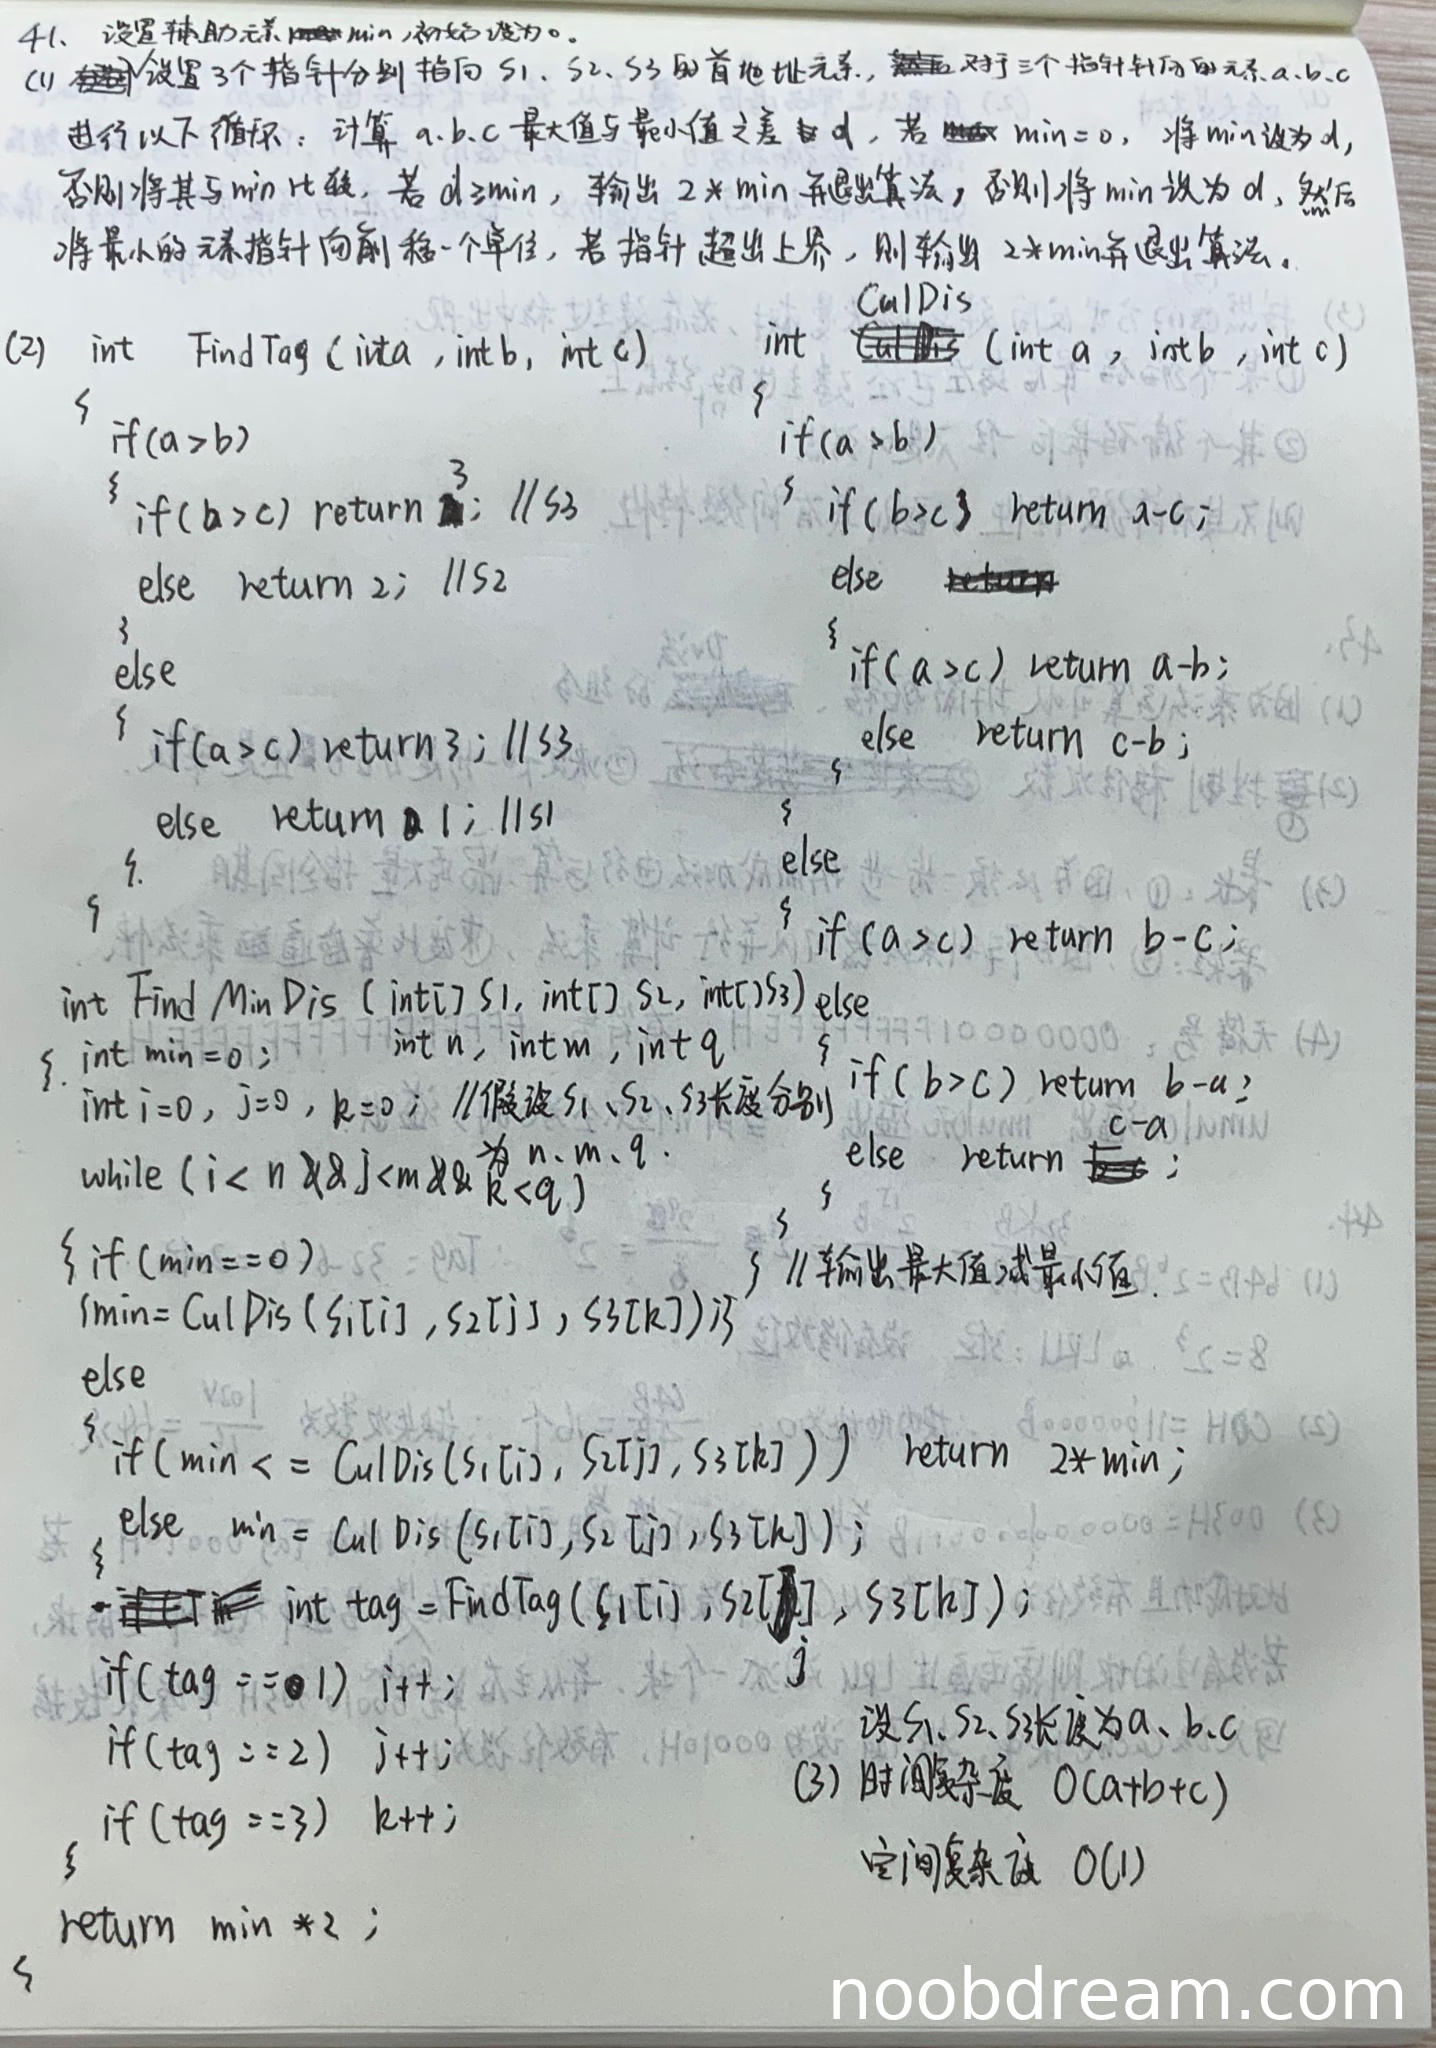 41、设置辅助元素 min，初始设为0。
(1) 设置3个指针分别指向S1、S2、S3的首地址元素，对于三个指针针向的元素a.b.c
进行以下循环：计算a.b.c最大值与最小值之差d，若 min=0，将min设为d，
否则将其与min比较，若d≥min，输出2*min并退出算法，否则将min设为d，然后
将最小的元素指针向前移一个单位，若指针超出上界，则输出2*min并退出算法。
(2) int FindTag (int a, int b, int c)
{
if(a>b)
{ if(b>c) return 3; //S3
else return 2; //S2
}
else
{ if(a>c) return 3; //S3
else return 1; //S1
}
}
int CulDis (int a, int b, int c)
{
if(a>b)
{ if(b>c) return a-c;
else
{ if(a>c) return a-b;
else return c-b;
}
}
else
{ if(a>c) return b-c;
else
{ if(b>c) return b-a;
else return c-a;
}
}
} //输出最大值减最小值.
int FindMinDis (int[] S1, int[] S2, int[] S3)
int n, int m, int q
{ int min=0;
int i=0, j=0, k=0; //假设S1、S2、S3长度分别
为n、m、q.
while (i<n && j<m && k<q)
{ if(min==0)
{min=CulDis(S1[i], S2[j], S3[k]);}
else
{ if(min<=CulDis(S1[i], S2[j], S3[k])) return 2*min;
else min=CulDis(S1[i], S2[j], S3[k]);
}
int tag=FindTag(S1[i], S2[j], S3[k]);
if(tag==1) i++;
if(tag==2) j++;
if(tag==3) k++;
}
return min*2;
}
设S1、S2、S3长度为a、b、c
(3) 时间复杂度 O(a+b+c)
空间复杂度 O(1)
noobdream.com